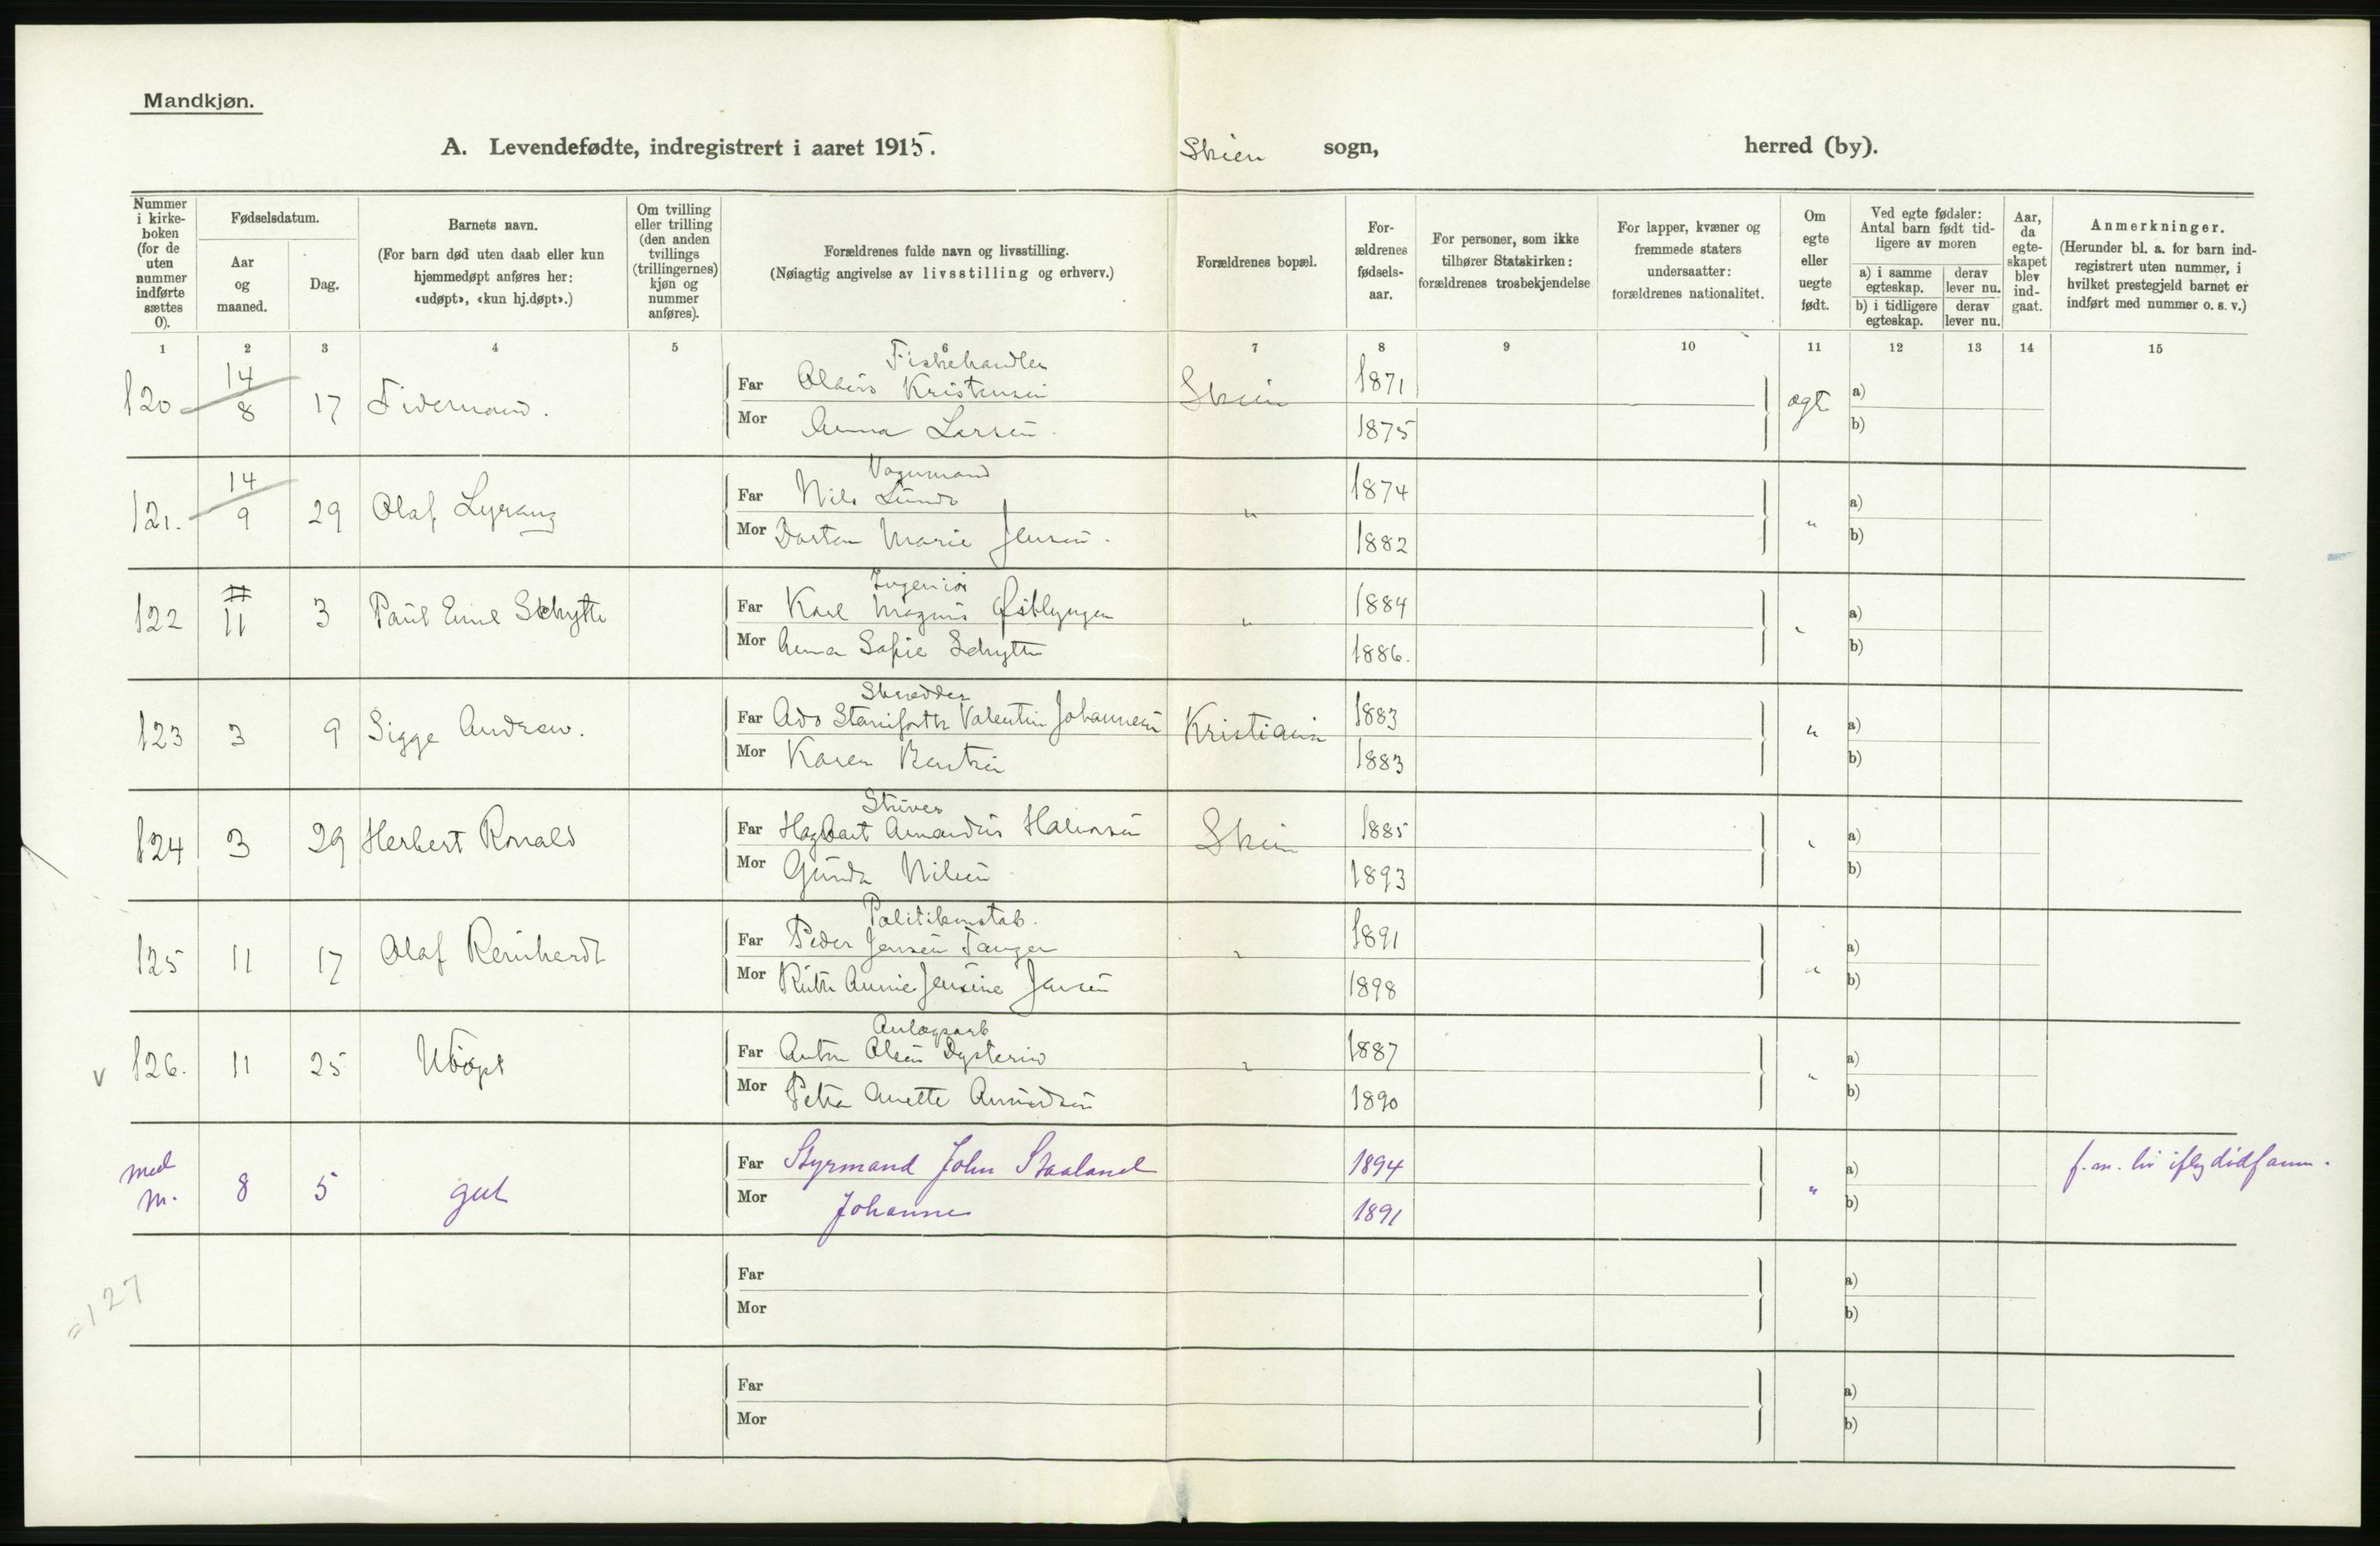 Mandkjøn.
A. Levendefødte, indregistrert i aaret 1915.
Skien sogn, herred (by).
Nummer i kirke-boken (for de uten nummer indførte sættes 0).
Fødselsdatum.
Aar og maaned.
Dag.
Barnets navn.
(For barn død uten daab eller kun hjemmedøpt anføres her: «udøpt», «kun hj.døpt».)
Om tvilling eller trilling (den anden tvillings (trillingernes) kjøn og nummer anføres).
Forældrenes fulde navn og livsstilling.
(Nøiagtig angivelse av livsstilling og erhverv.)
Forældrenes bopæl.
For-ældrenes fødsels-aar.
For personer, som ikke tilhører Statskirken: forældrenes trosbekjendelse
For lapper, kvæner og fremmede staters undersaatter: forældrenes nationalitet.
Om egte eller uegte født.
Ved egte fødsler: Antal barn født tid-ligere av moren
a) i samme egteskap.
derav lever nu.
b) i tidligere egteskap.
derav lever nu.
Aar, da egte-skapet blev ind-gaat.
Anmerkninger.
(Herunder bl. a. for barn ind-registrert uten nummer, i hvilket prestegjeld barnet er indført med nummer o. s. v.)
1 2 3 4 5 6 7 8 9 10 11 12 13 14 15
Fiskehandler
120 14/8 17 Far Kristensen Skien 1871 ægte a)
Mor Anna Larsen. 1875 b)
Vognmand
121. 14/9 29 Olaf Far Nils Lunde " 1874 " a)
Mor Marie Jensen. 1882 b)
Ingeniør
122 11 3 Paul Emil Schytte Far Karl Magnus " 1884 " a)
Mor Anna Sofie Schytte 1886. b)
Skredder
123 3 9 Sigge Andrew. Far Valentin Johannesen Kristiania 1883 " a)
Mor Karen 1883 b)
Skriver
124 3 29 Herbert Ronald Far Hagbart Amandus Halvorsen Skien 1885 " a)
Mor Gunda Nilsen 1893 b)
Politikonstab.
125 11 17 Olaf Reinhardt Far Peder Jensen Tangen " 1891 " a)
Mor Ruth Annie Jensine Jensen 1898 b)
Anlægsarb
v 126. 11 25 Udøpt Far Anton Olsen " 1887 " a)
Mor Petra Anette Amundsen 1890 b)
med m. 8 5 gut Far Styrmand John Staaland 1894 " a) f. m. liv iflg dødfanm.
Mor Johanne 1891 b)
= 127
Far a)
Mor b)
Far a)
Mor b)